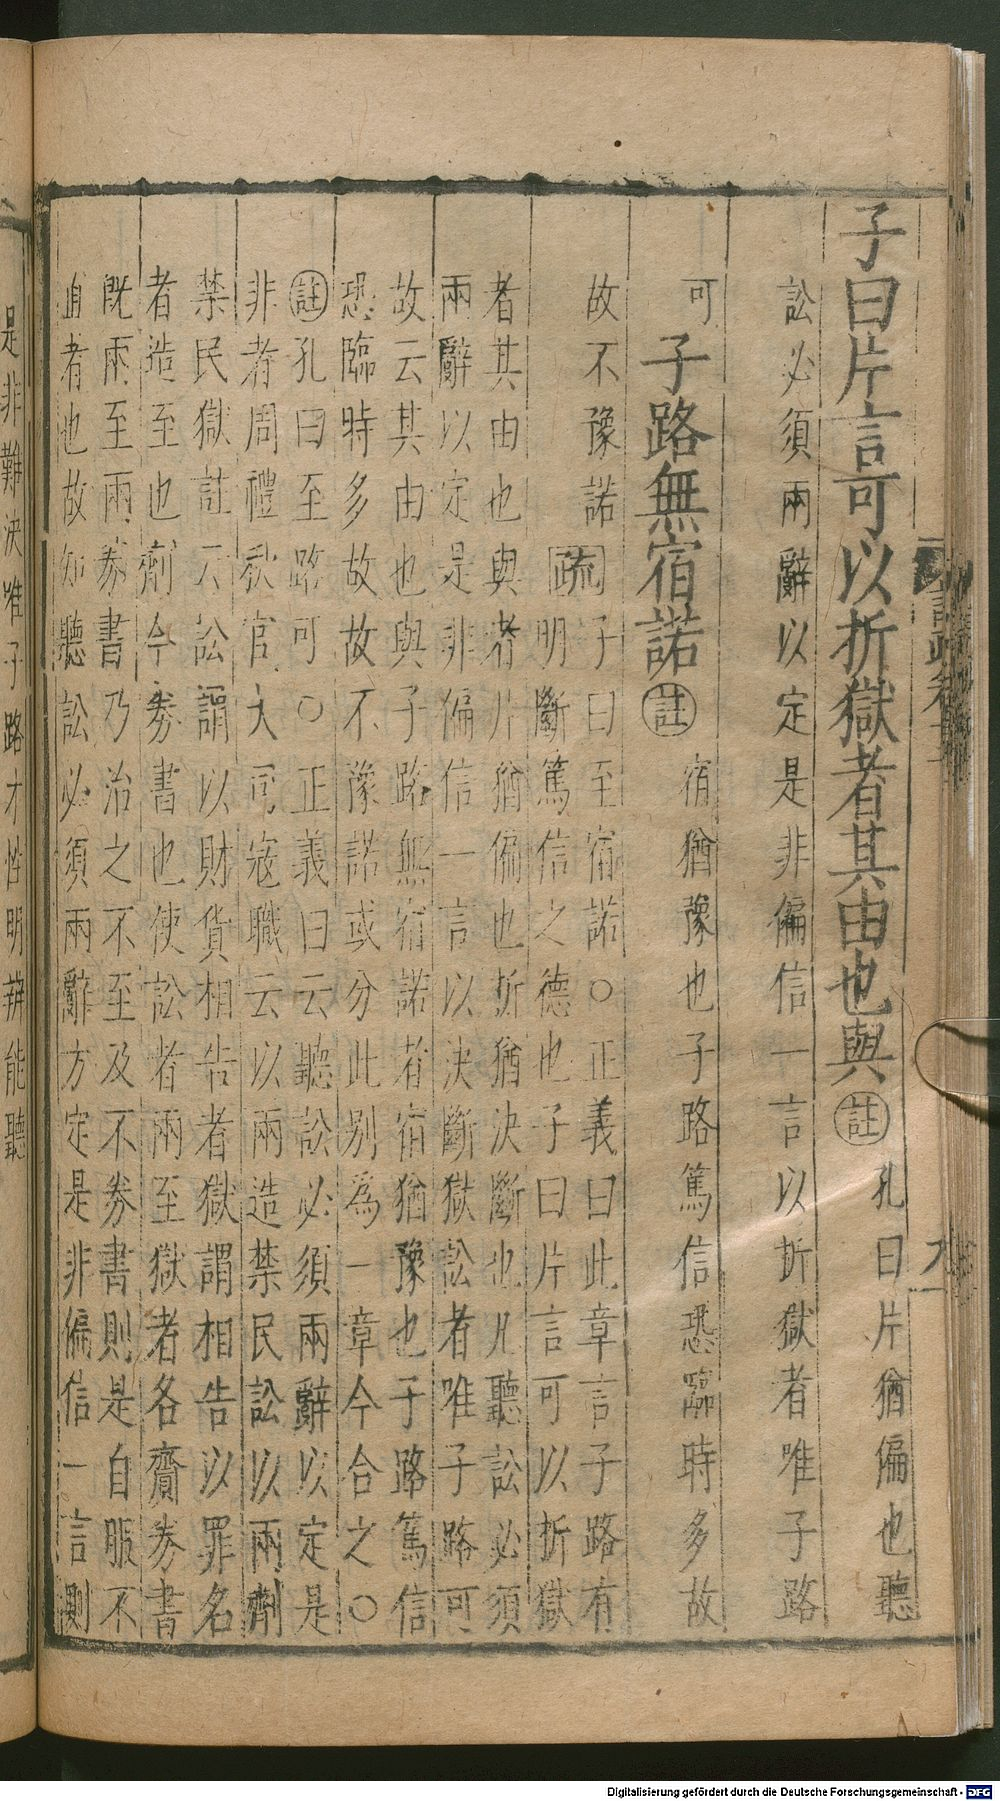 子曰片言可以折獄者其由也與註孔曰片猶偏也聽
訟必須兩辭以定是非偏信一言以折獄者唯子路
可子路無宿諾註宿猶豫也子路篤信恐臨時多故
故不豫諾疏子曰至宿諾○正義曰此章言子路有
明斷篤信之德也子曰片言可以折獄
者其由也與者片猶偏也折猶決斷也凡聽訟必須
兩辭以定是非偏信一言以決斷獄訟者唯子路可
故云其由也與子路無宿諾者宿猶豫也子路篤信
恐臨時多故故不豫諾或分此別為一章今合之○
註孔曰至路可○正義曰云聽訟必須兩辭以定是
非者周禮秋官大司寇職云以兩造禁民訟以兩劑
禁民獄註云訟謂以財貨相告者獄謂相告以罪名
者造至也劑今券書也使訟者兩至獄者各齎券書
既兩至兩券書乃治之不至及不券書則是自服不
直者也故知聽訟必須兩辭方定是非偏信一言則
是非難決唯子路才性明辨能聽
Digitalisierung gefördert durch die Deutsche Forschungsgemeinschaft - DFG